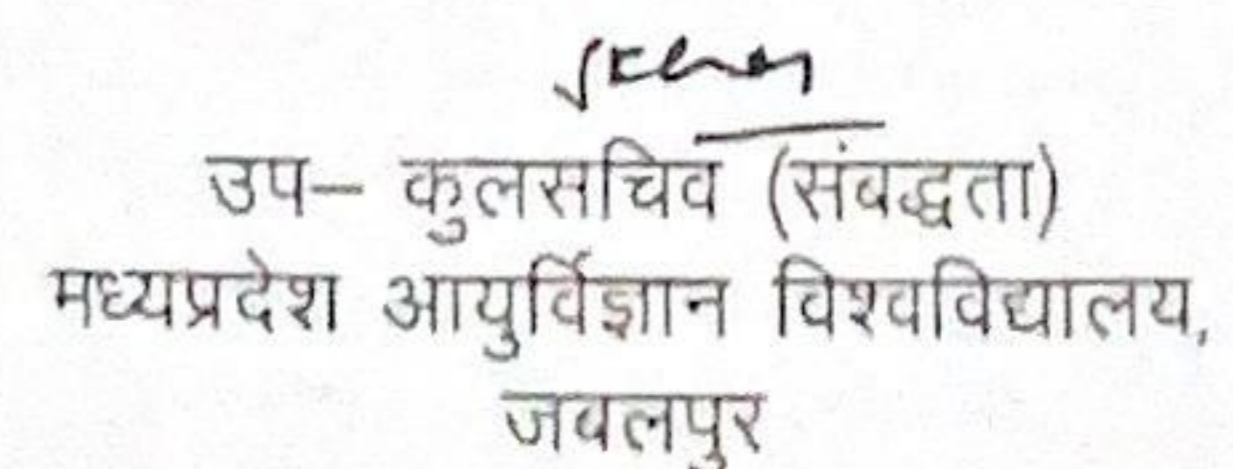 उप– कुलसचिव (संबद्धता)
मध्यप्रदेश आयुर्विज्ञान विश्वविद्यालय,
जबलपुर